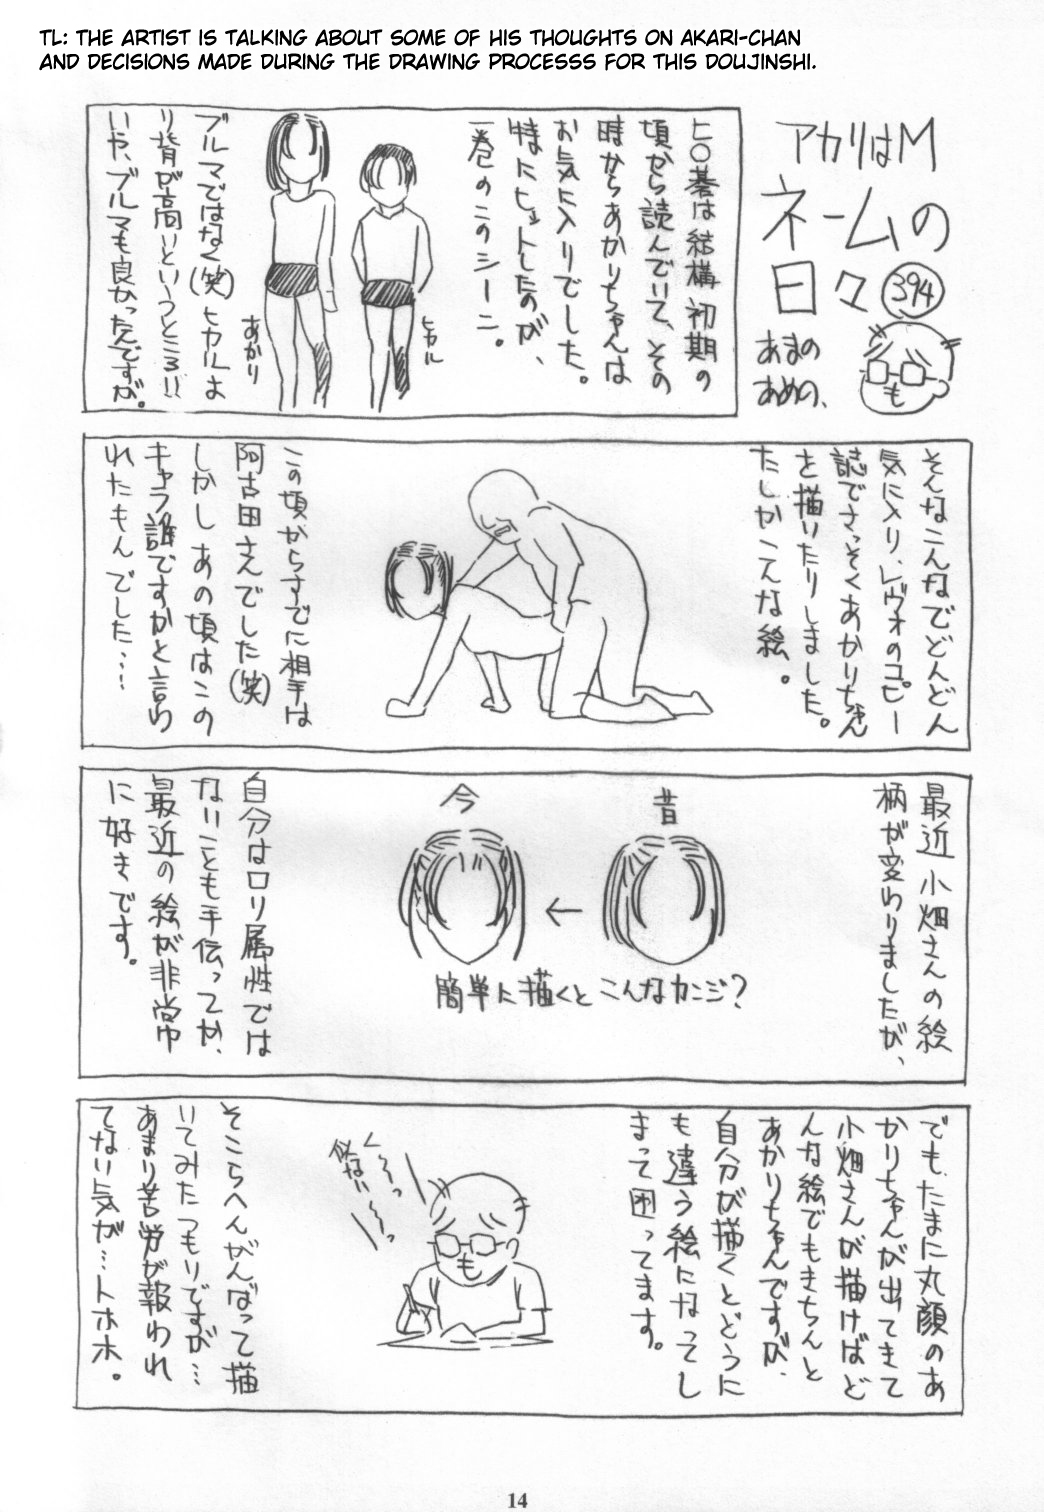 TL: THE ARTIST IS TALKING ABOUT SOME OF HIS THOUGHTS ON AKARI-CHAN
AND DECISIONS MADE DURING THE DRAWING PROCESSS FOR THIS DOUJINSHI.
アカリはM
ネームの
日々
394
あまの
あめの、
ヒ〇碁は結構初期の
頃から読んでいて、その
時からあかりちゃんは
お気に入りでした。
特にヒットしたのが、
一巻のこのシーン。
ヒカル
あかり
ブルマではなく(笑)ヒカルよ
り背が高いというところ!!
いや、ブルマも良かったんですが。
そんなこんなでどんどん
気に入り、レヴォのコピー
誌でさっそくあかりちゃん
を描いたりしました。
たしかこんな絵。
この頃からすでに相手は
阿古田さんでした(笑)
しかしあの頃はこの
キャラ誰ですかと言わ
れたもんでした…
最近小畑さんの絵
柄が変わりましたが、
昔
←
今
簡単に描くとこんなカンジ?
自分はロリ属性では
ないことも手伝ってか、
最近の絵が非常
に好きです。
でも、たまに丸顔のあ
かりちゃんが出てきて
小畑さんが描けばど
んな絵でもきちんと
あかりちゃんですが、
自分が描くとどうに
も違う絵になってし
まって困ってます。
く〜〜っ
似ない〜〜っ
そこらへんがんばって描
いてみたつもりですが…
あまり苦労が報われ
てない気が…トホホ。
14